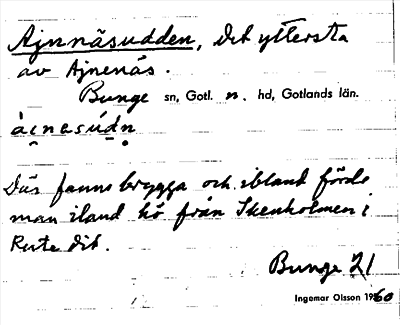 Ajnnäsudden, Det yttersta
av Ajnenäs.
Bunge sn, Gotl. n. hd, Gotlands län.
Där fanns brygga och ibland förde
man iland hö från Skenholmen i
Rute dit.
Bunge 21
Ingemar Olsson 1960